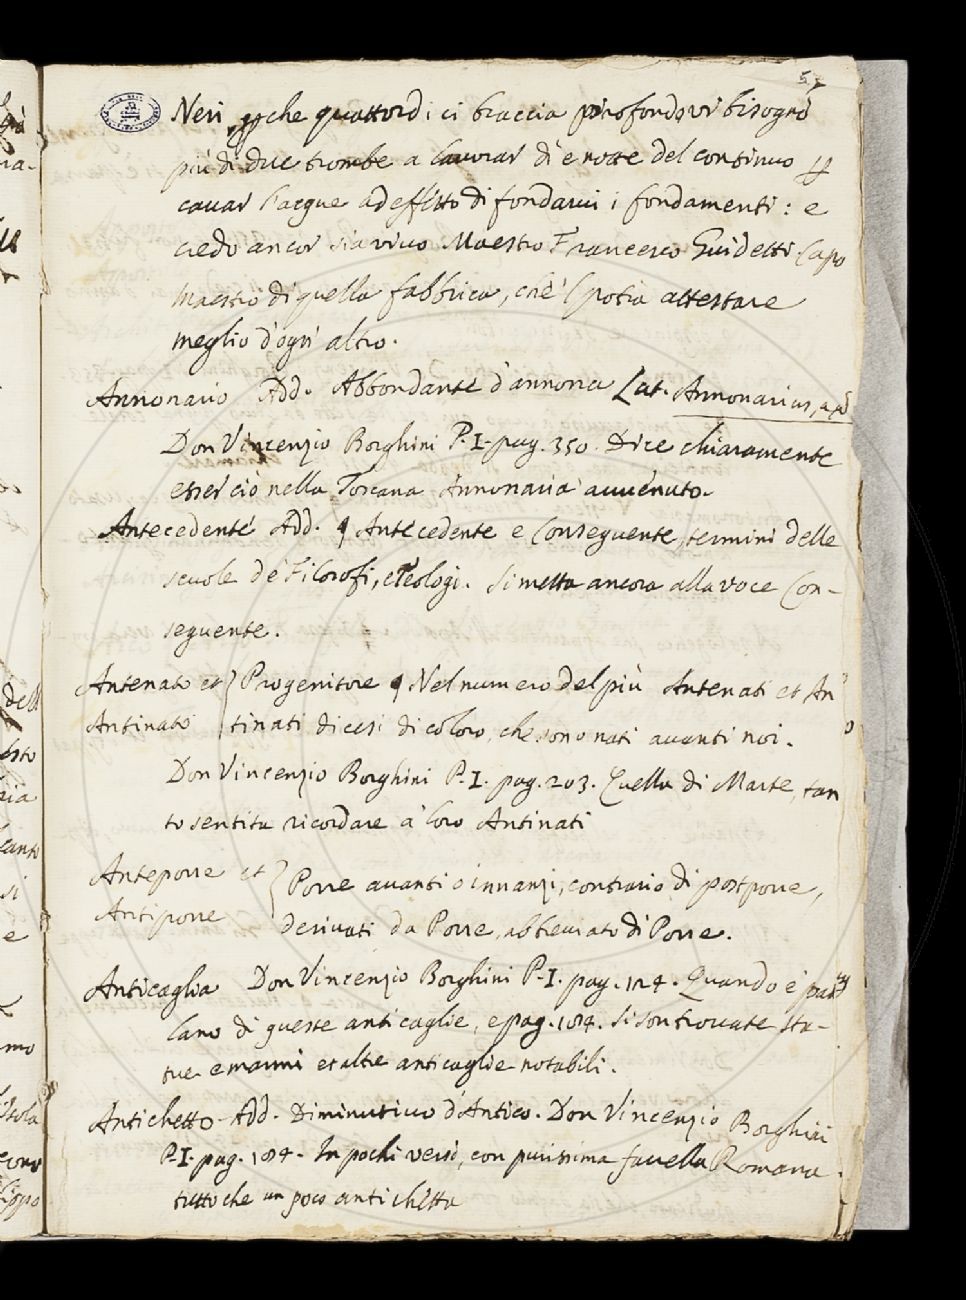 5
Neri, che quattordici braccia profondo vi bisognò
più di due trombe a lavorar dì e notte del continuo p
cavar l'acque ad effetto di fondarvi i fondamenti: e
credo ancor sia vivo Maestro Francesco Guidetti Capo
maestro di quella fabbrica, che 'l potrà attestare
meglio d'ogn' altro.
Annonario Add. Abbondante d'annona Lat. Annonarius, a, ū
Don Vincenzio Borghini P. I. pag. 350. Dice chiaramente
esser ciò nella Toscana Annonaria avvenuto.
Antecedente Add. ¶ Antecedente e Conseguente, termini delle
scuole de' Filosofi, e Teologi. Si metta ancora alla voce Con-
seguente.
Antenato et } Progenitore ¶ Nel numero del più Antenati et An
Antinato } tinati dicesi di coloro, che sono nati avanti noi.
Don Vincenzio Borghini P. I. pag. 203. Quella di Marte, tan
to sentita ricordare a' loro Antinati
Anteporre et } Porre avanti o innanzi, contrario di posporre,
Antiporre derivati da Porre, abbreviato di Ponere.
Anticaglia Don Vincenzio Borghini P. I. pag. 124. Quando e' par
lano di queste anticaglie, e pag. 184. Si son trovate sta-
tue e marmi et altre anticaglie notabili.
Antichetto Add. Diminutivo d'Antico. Don Vincenzio Borghini
P. I. pag. 184. In pochi versi, con purissima favella Romana
tutto che un poco antichetta